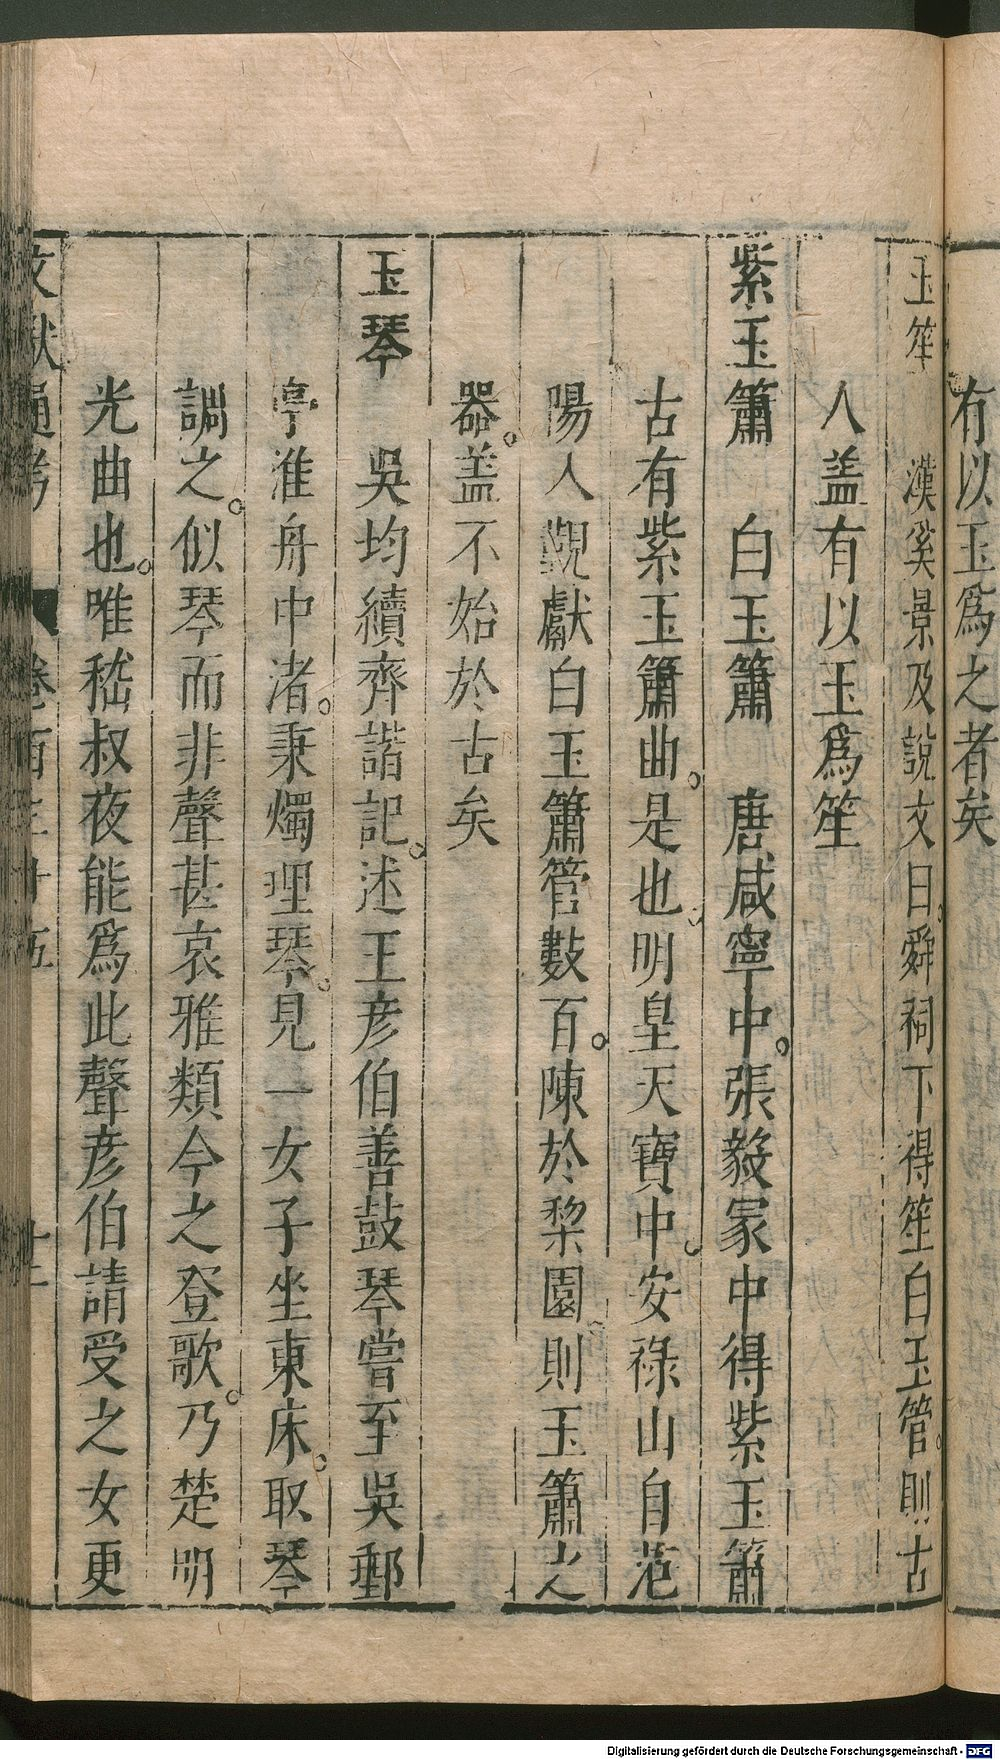 有以玉爲之者矣
玉笙　漢奚景及說文曰舜祠下得笙白玉管則古
人盖有以玉爲笙
紫玉簫　白玉簫　唐咸寧中張毅冢中得紫玉簫
古有紫玉簫曲是也明皇天寶中安祿山自范
陽入覲獻白玉簫管數百陳於梨園則玉簫之
器盖不始於古矣
玉琴　吳均續齊諧記述王彦伯善鼓琴嘗至吳郵
亭淮舟中渚秉燭理琴見一女子坐東床取琴
調之似琴而非聲甚哀雅類今之登歌乃楚明
光曲也唯嵇叔夜能爲此聲彦伯請受之女更
文獻通考　卷百三十五　十二
Digitalisierung gefördert durch die Deutsche Forschungsgemeinschaft - DFG